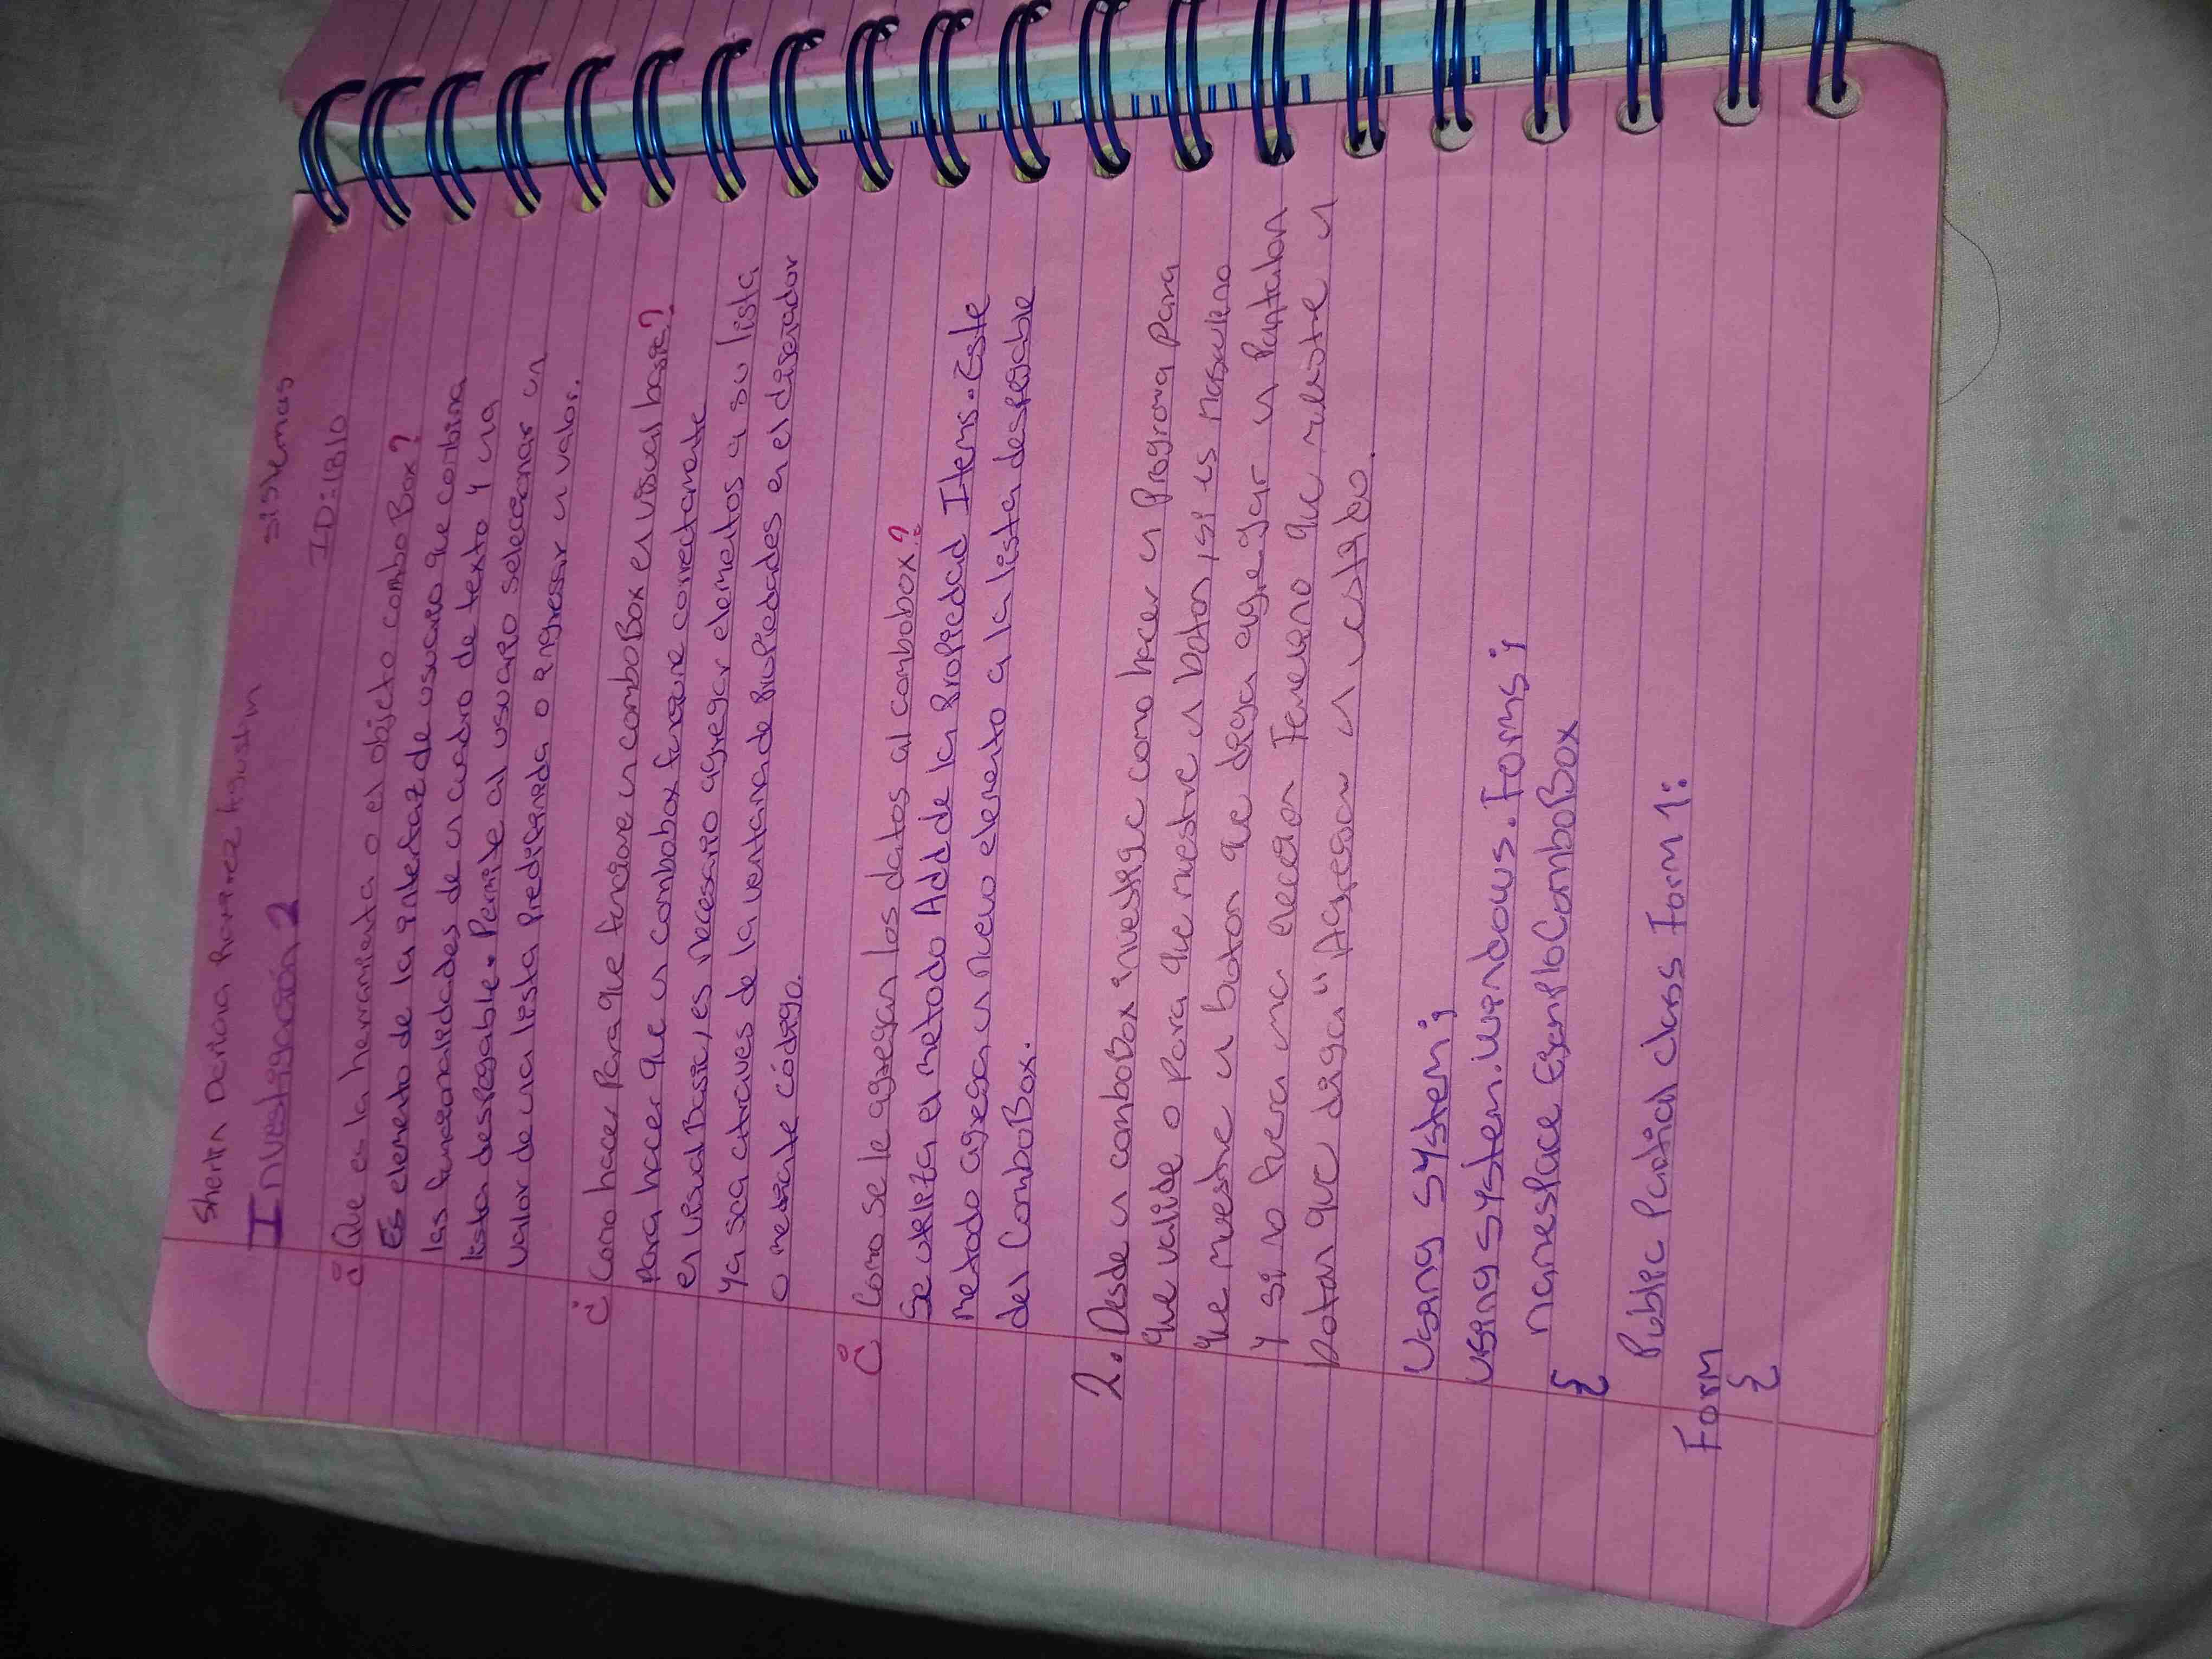 Sherlin Dariana Ramirez Agustin
Investigación 2 sistemas
ID:1810
¿Que es la herramienta o el objeto comboBox?
Es elemento de la interfaz de usuario que combina
las funcionalidades de un cuadro de texto y una
lista desplegable. Permite al usuario seleccionar un
valor de una lista predefinida o ingresar un valor.
¿Como hacer para que funcione un comboBox en visual basic?
para hacer que un combobox funcione correctamente
en Visual Basic, es necesario agregar elementos a su lista
ya sea atraves de la ventana de Propiedades en el diseñador
o mediante código.
¿Como se le agregan los datos al combobox?
Se utiliza el metodo Add de la propiedad Items. Este
metodo agrega un nuevo elemento a la lista desplegable
del ComboBox.
2. Desde un comboBox investigue como hacer un programa para
que valide o para que muestre un boton, si es masculino
que muestre un boton que diga agregar un Pantalon
y si no fuera una elección Femenino que muestre un
boton que diga "Agregar un vestido.
Using System;
using System.Windows.Forms;
namespace EjemploComboBox
{
Public Partial class Form1:
Form
{